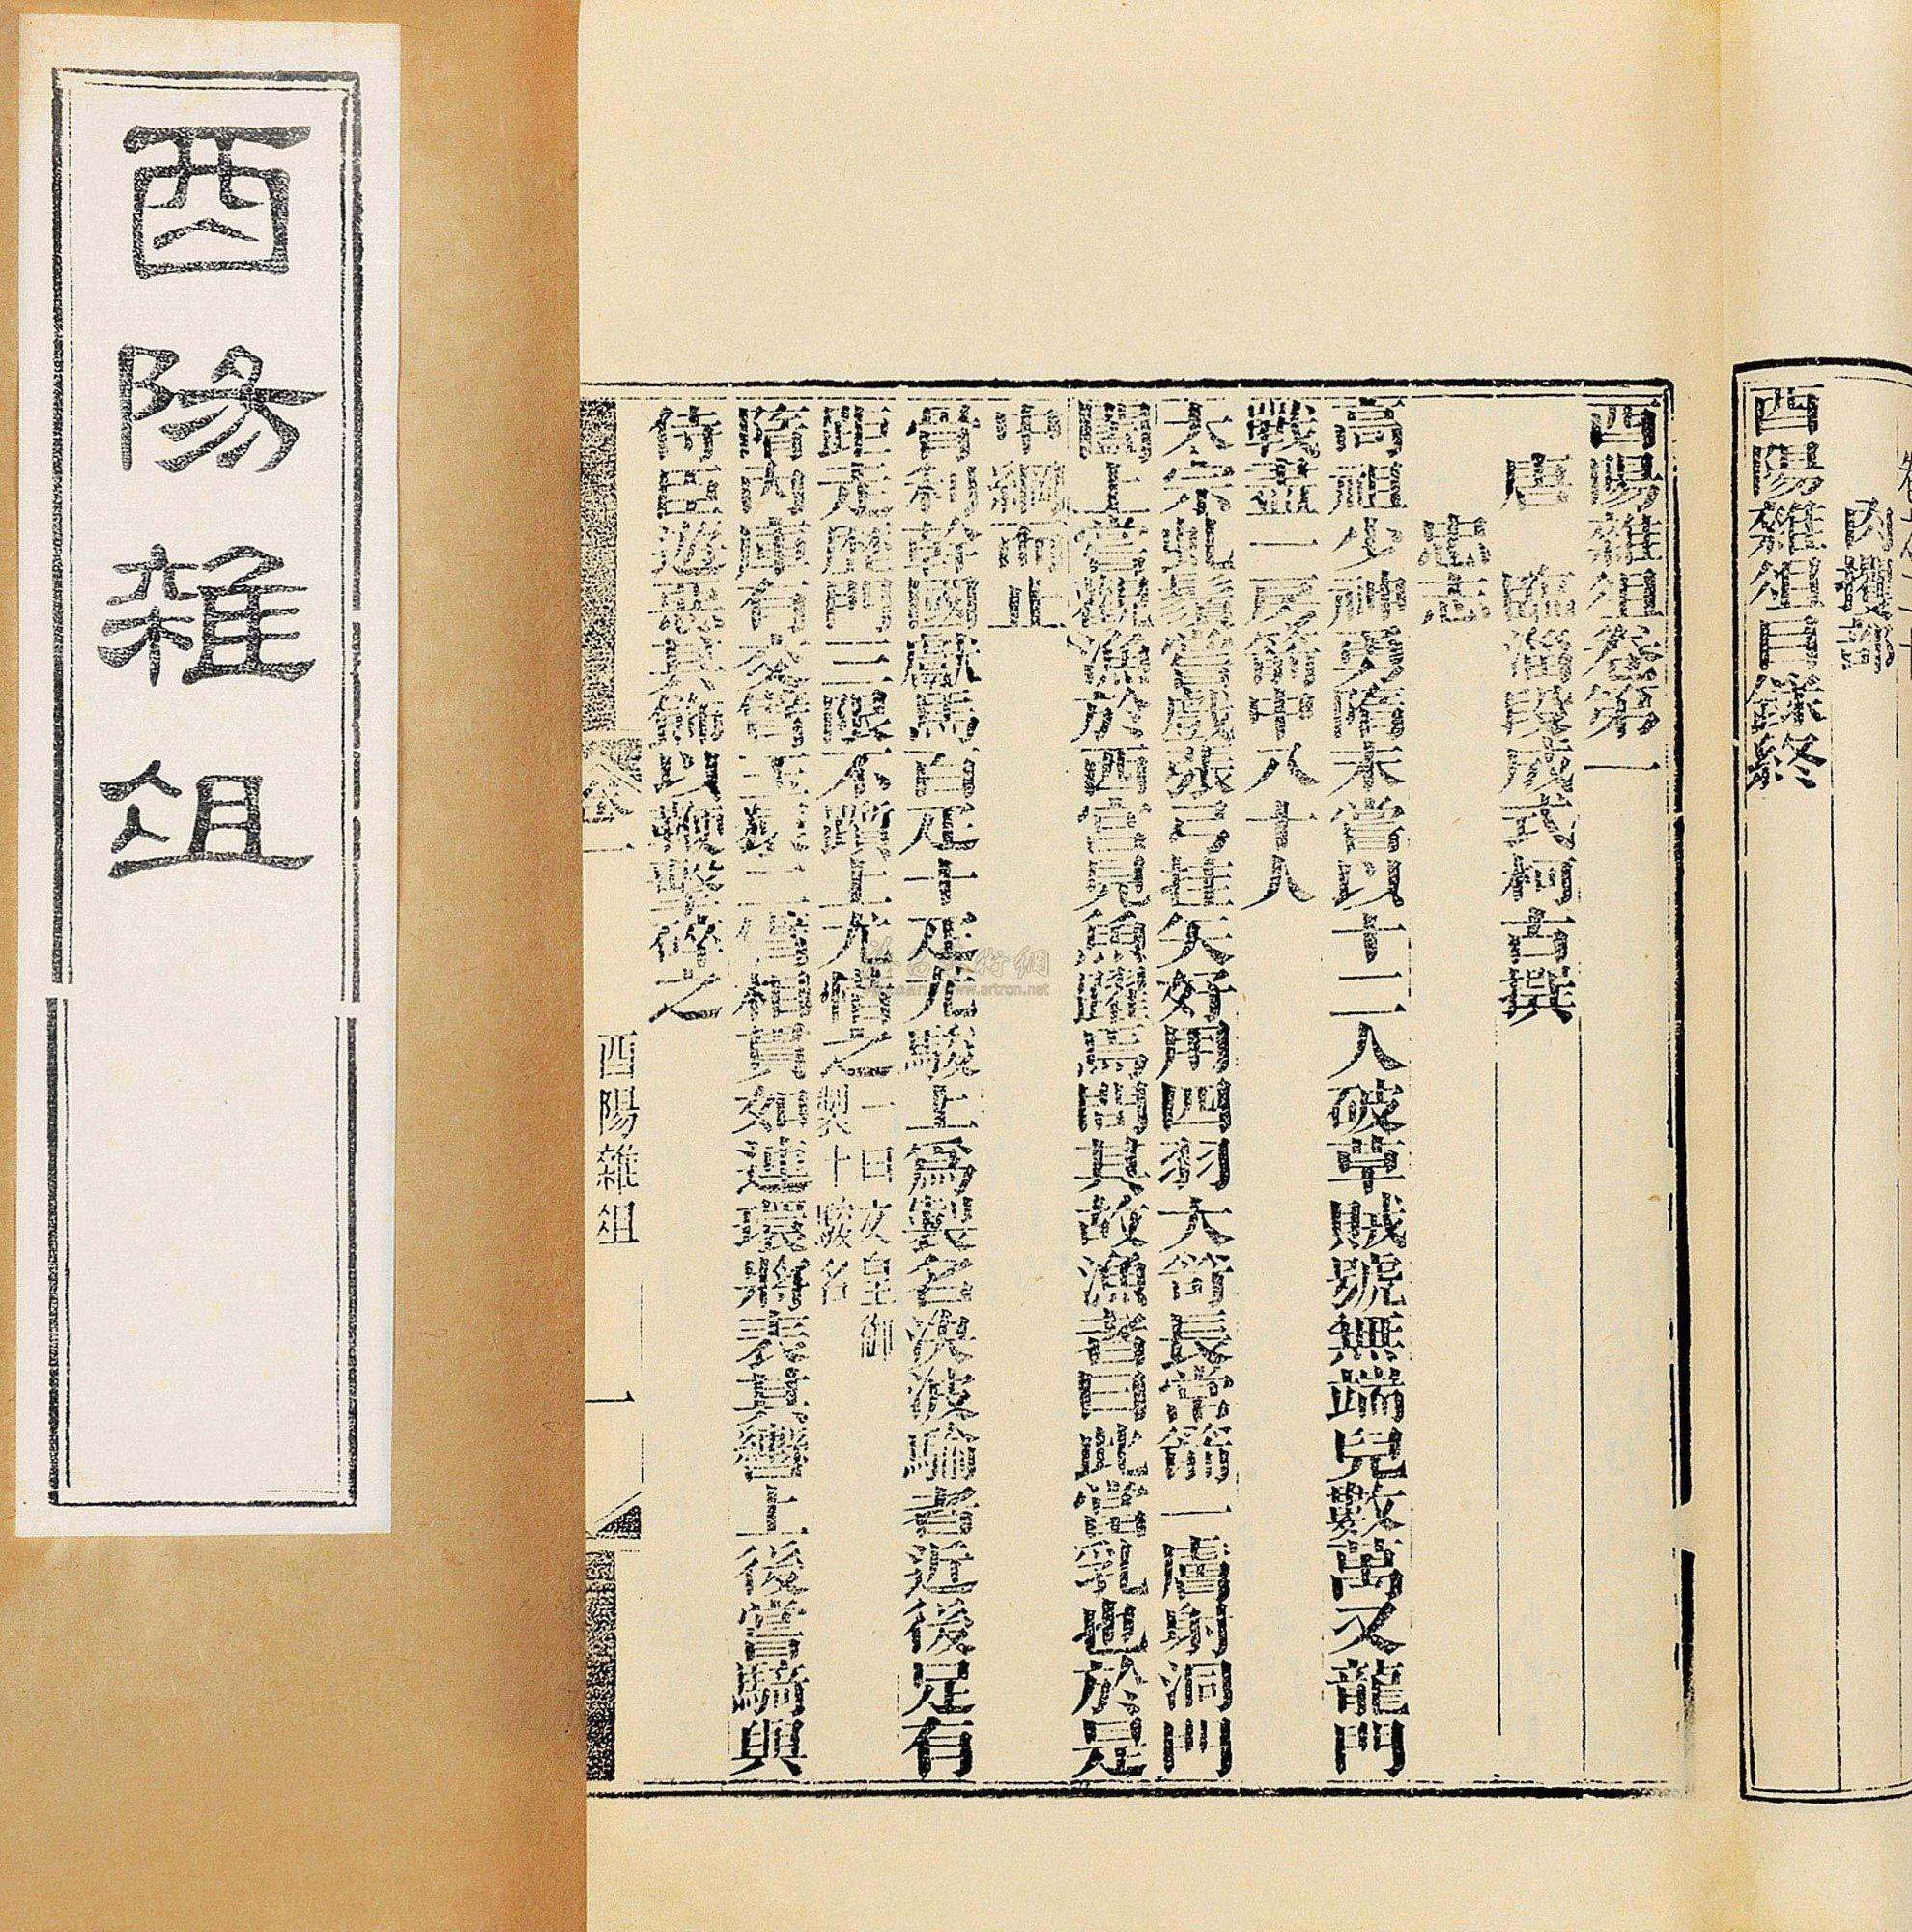 酉陽雜俎
肉攫部
酉陽雜俎目錄終
酉陽雜俎卷第一
唐　臨淄段成式柯古撰
忠志
高祖少神勇隋末嘗以十二人破草賊號無端兒數萬又龍門
戰盡一房箭中八十人
太宗虬鬚嘗戲張弓挂矢好用四羽大笴長常箭一膚射洞門
闔上嘗觀漁於西宮見魚躍焉問其故漁者曰此當乳也於是
中網而止
骨利幹國獻馬百疋十疋尤駿上爲製名決波騟者近後足有
距走歷門三限不躓上尤惜之一曰文皇御製十駿名
隋內庫有交臂玉猿二臂相貫如連環將表其轡上後嘗騎與
侍臣遊惡其飾以鞭擊碎之
卷一
酉陽雜俎
一
www.artron.net